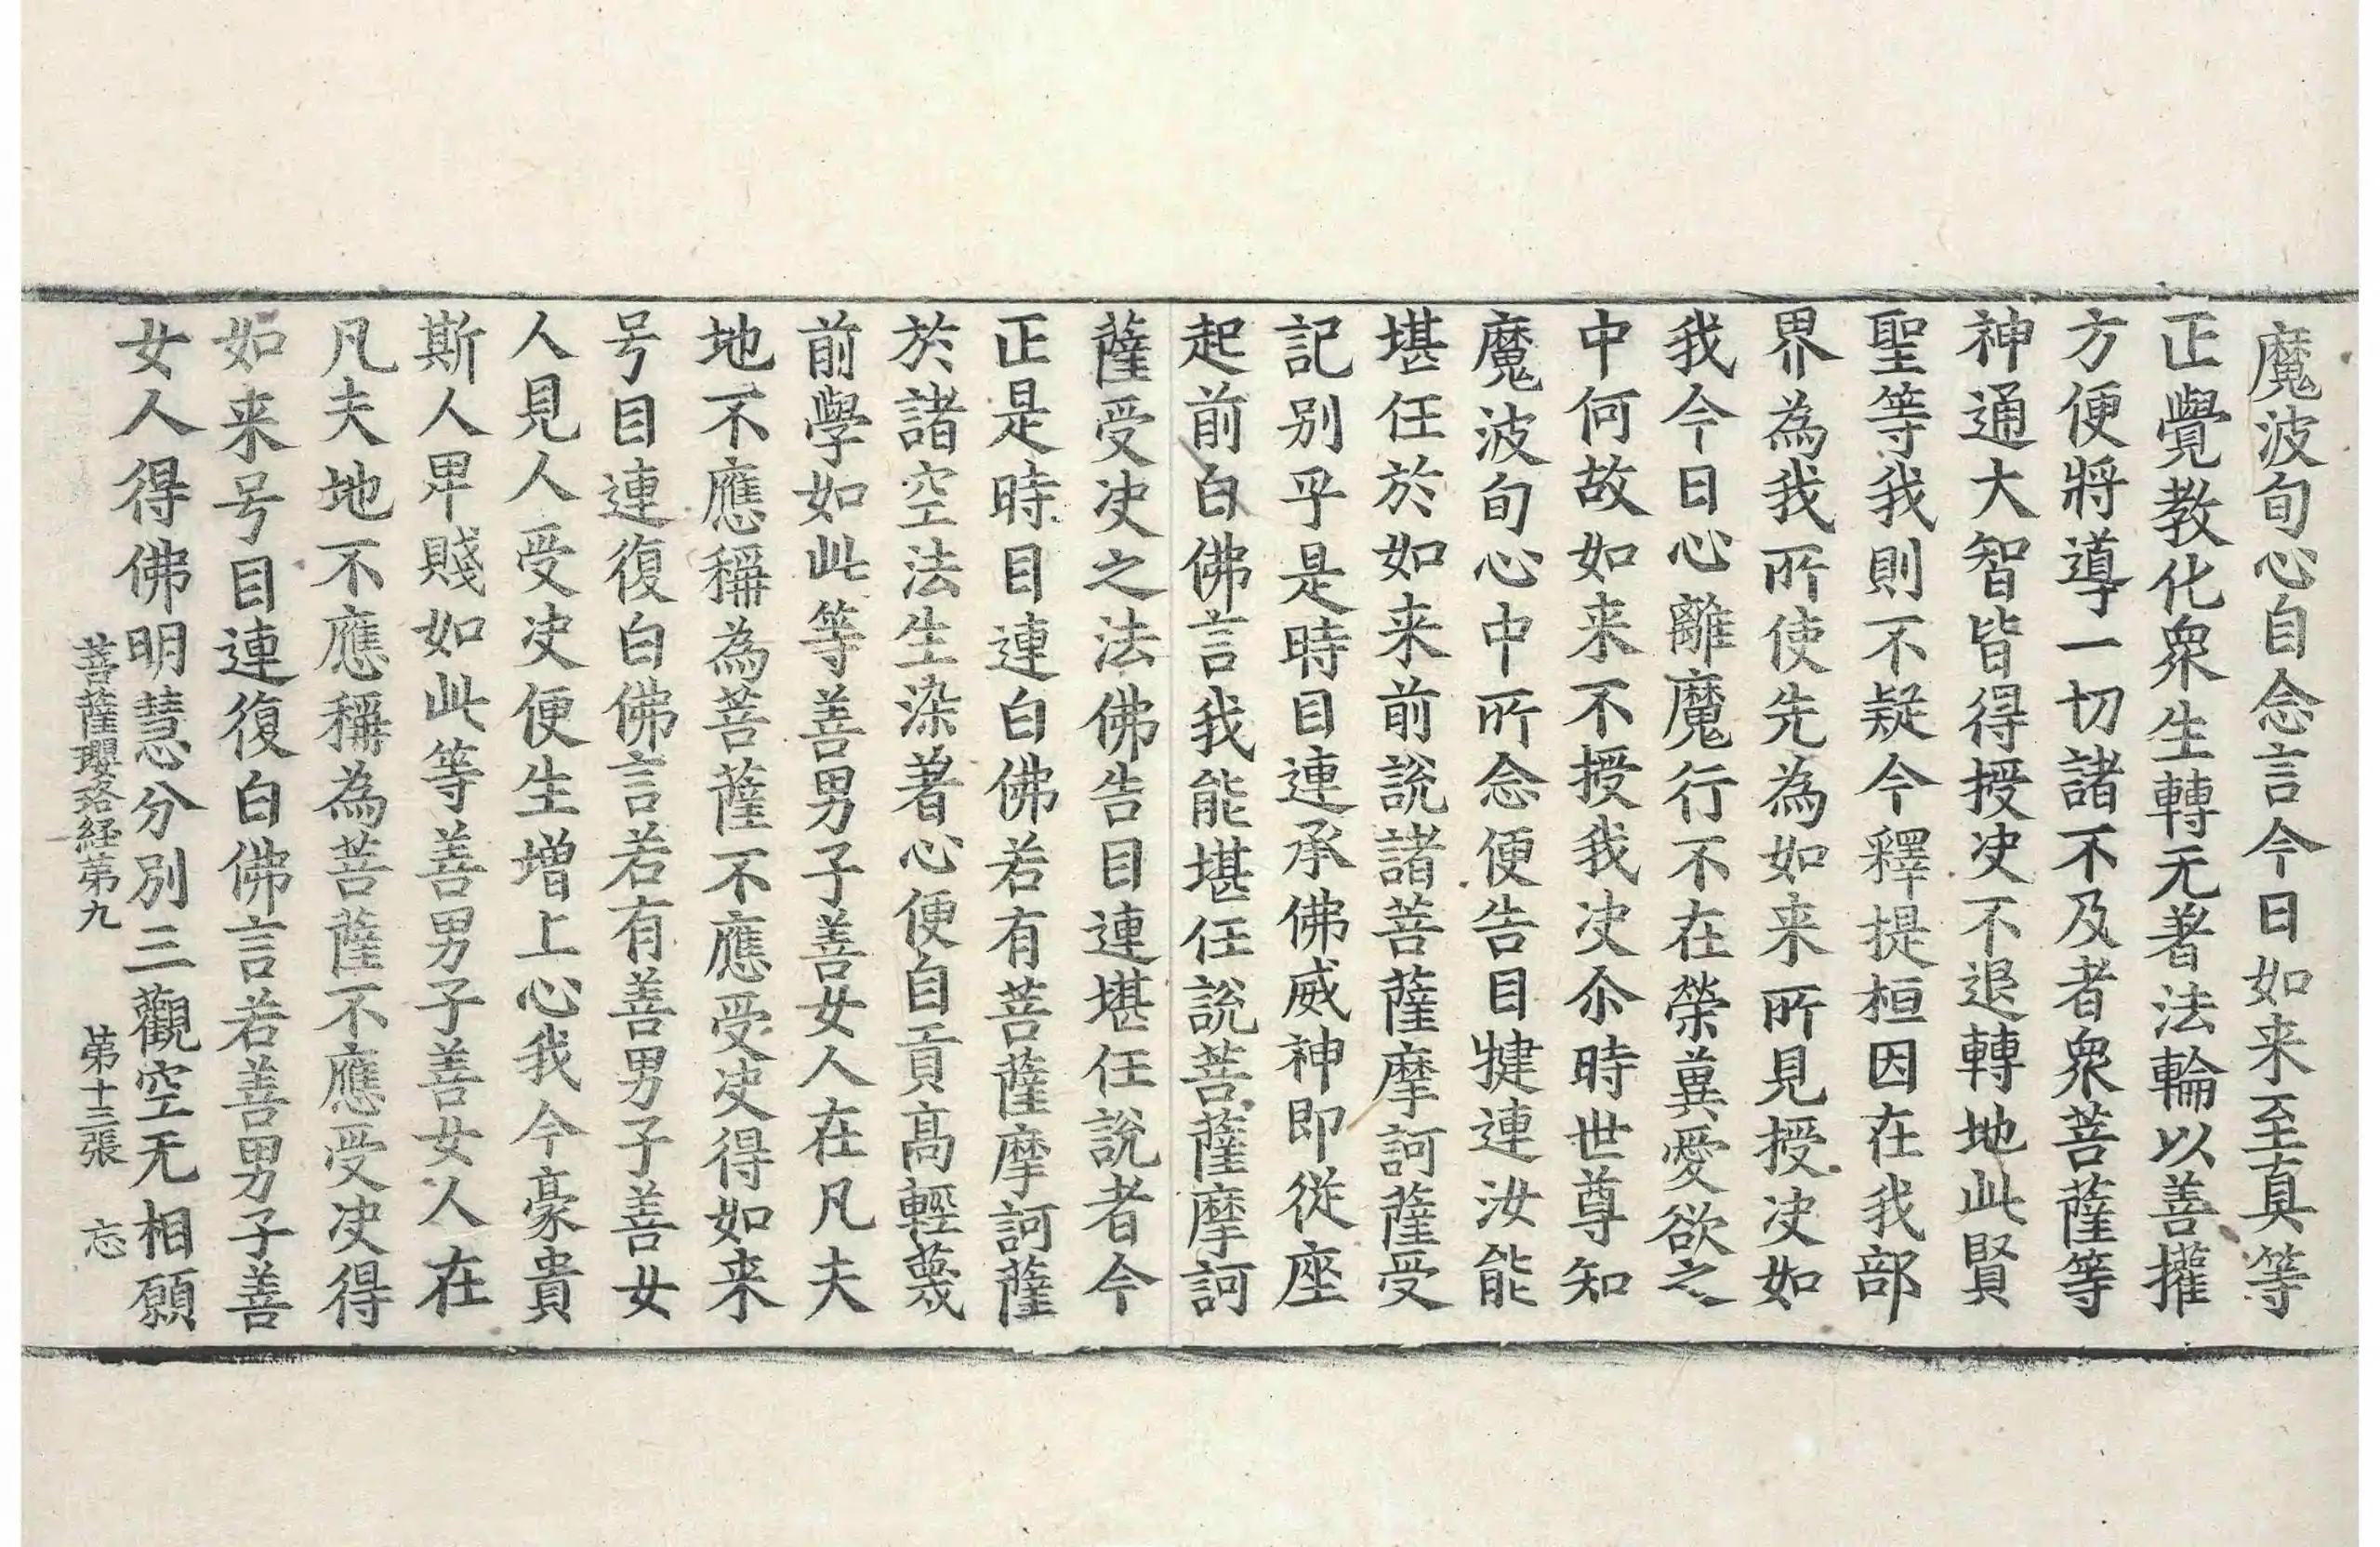 魔波旬心自念言今日如来至真等
正覺教化衆生轉无著法輪以善權
方便將導一切諸不及者衆菩薩等
神通大智皆得授决不退轉地此賢
聖等我則不疑今釋提桓因在我部
界為我所使先為如来所見授决如
我今日心離魔行不在榮兾愛欲之
中何故如来不授我决尒時世尊知
魔波旬心中所念便告目揵連汝能
堪任於如来前說諸菩薩摩訶薩受
記别乎是時目連承佛威神即從座
起前白佛言我能堪任說菩薩摩訶
薩受决之法佛告目連堪任說者今
正是時目連白佛若有菩薩摩訶薩
於諸空法生染著心便自貢高輕蔑
前學如此等善男子善女人在凡夫
地不應稱為菩薩不應受决得如来
号目連復白佛言若有善男子善女
人見人受决便生增上心我今豪貴
斯人卑賤如此等善男子善女人在
凡夫地不應稱為菩薩不應受决得
如来号目連復白佛言若善男子善
女人得佛明慧分別三觀空无相願
菩薩瓔珞経苐九 苐十三張 忘